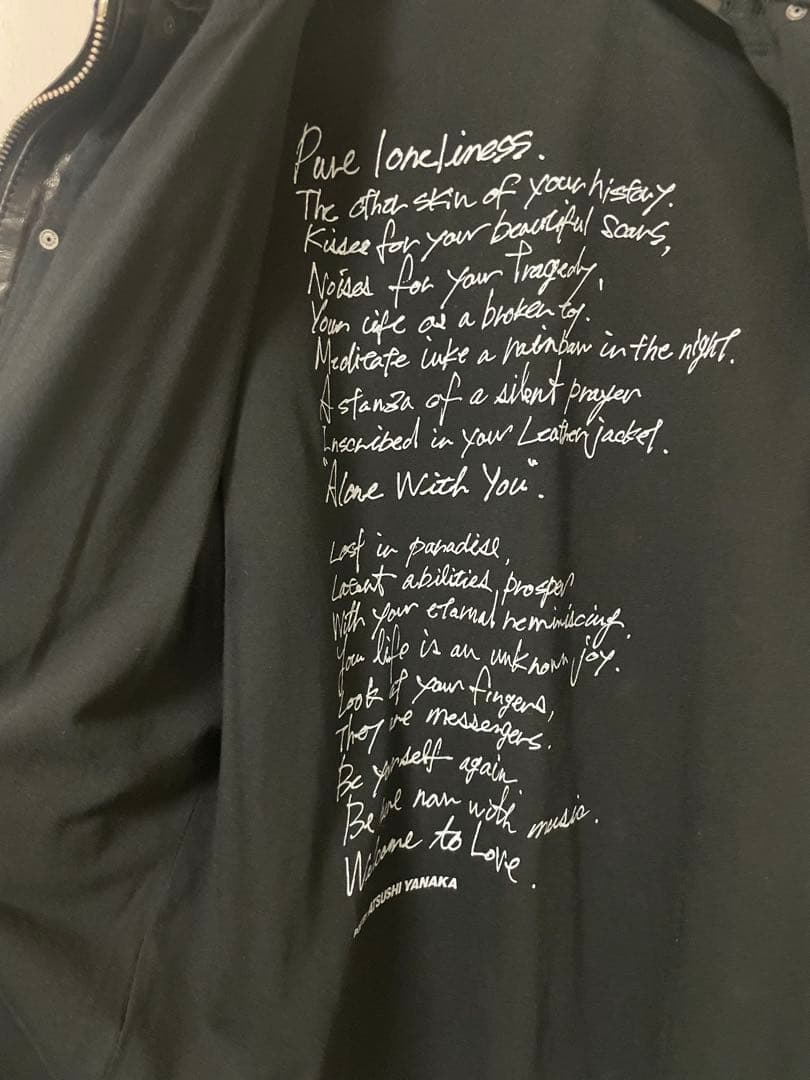 Pure loneliness.
The other skin of your history.
Kisses for your beautiful scars,
Noises for your Tragedy,
Your life as a broken toy.
Meditate like a rainbow in the night.
A stanza of a silent prayer
Inscribed in your Leather jacket.
"Alone With You".
Lost in paradise,
Latent abilities prosper
With your eternal reminiscing.
Your life is an unknown joy.
Look at your fingers,
They're messengers.
Be yourself again
Be here now with music.
Welcome to Love.
ATSUSHI YANAKA